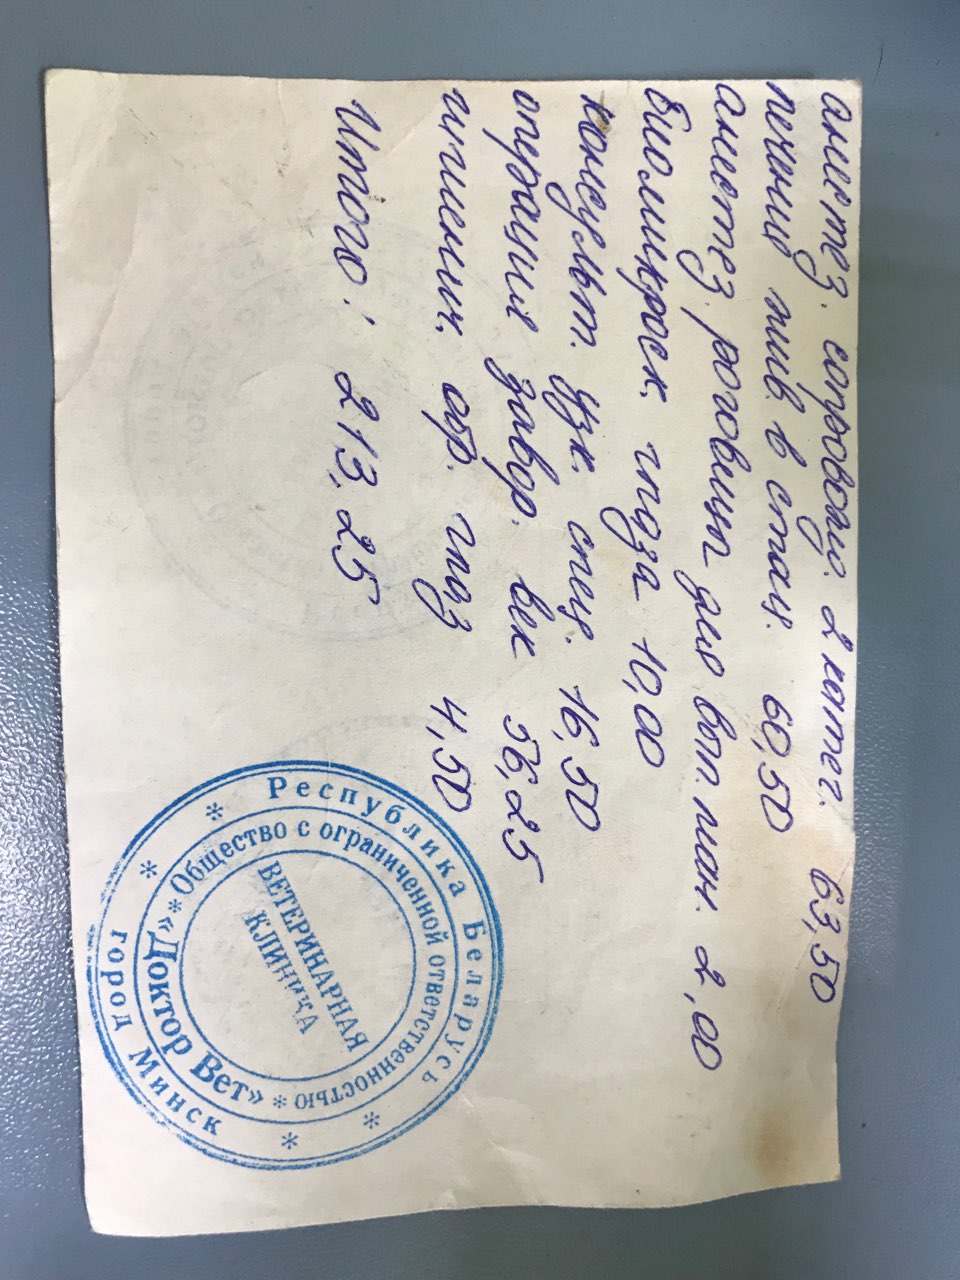 анестез. сопровожд. 2 катег. 63,50
лечение жив. в стац. 60,50
анестез роговицы для вып. ман. 2,00
биомикроск. глаза 10,00
консульт. узк. спец. 16,50
операция завор. век 56,25
гигиенич. обр. глаз 4,50
Итого: 213,25
Республика Беларусь
* Общество с ограниченной ответственностью *
ВЕТЕРИНАРНАЯ
КЛИНИКА
«Доктор Вет»
город Минск